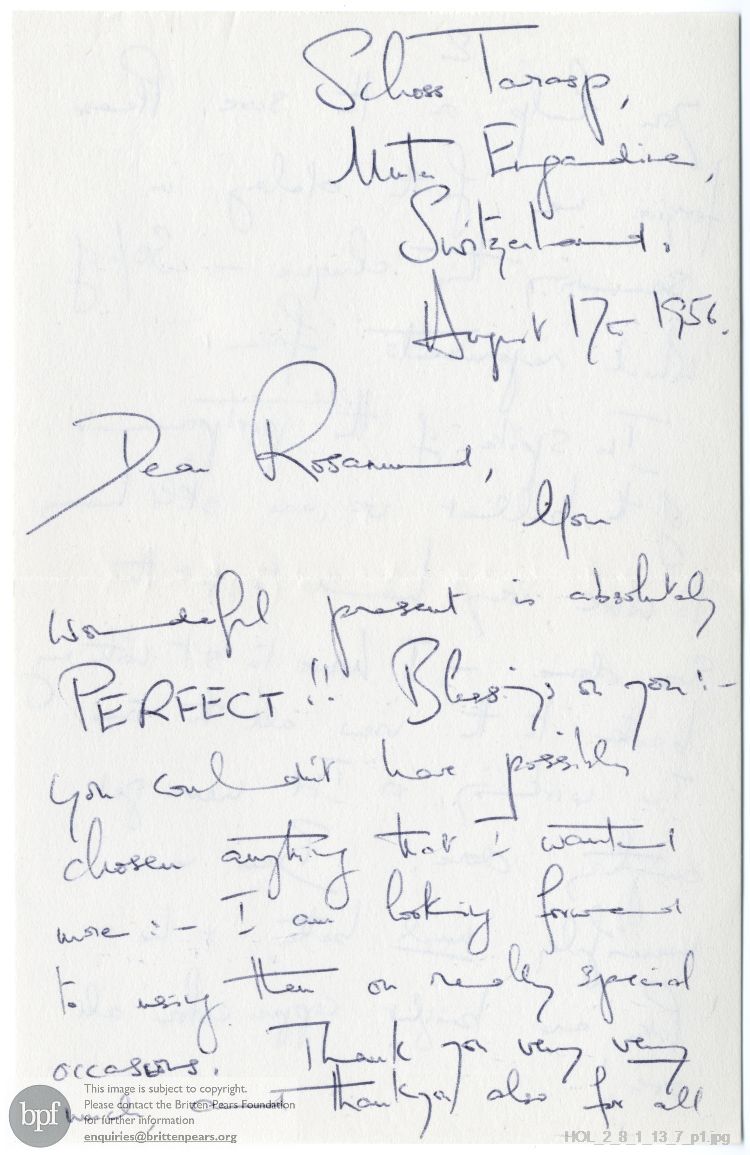 Schloss Tarasp,
Unter Engandine,
Switzerland.
August 17 – 1956.
Dear Rosamund,
Your
wonderful present is absolutely
PERFECT!! Blessings on you! –
you couldn't have possibly
chosen anything that I wanted
more : – I am looking forward
to using them on really special
occasions. Thank you very very
much and thankyou also for all
bpf
This image is subject to copyright.
Please contact the Britten-Pears Foundation
for further information
enquiries@brittenpears.org
HOL_2_8_1_13_7_p1.jpg